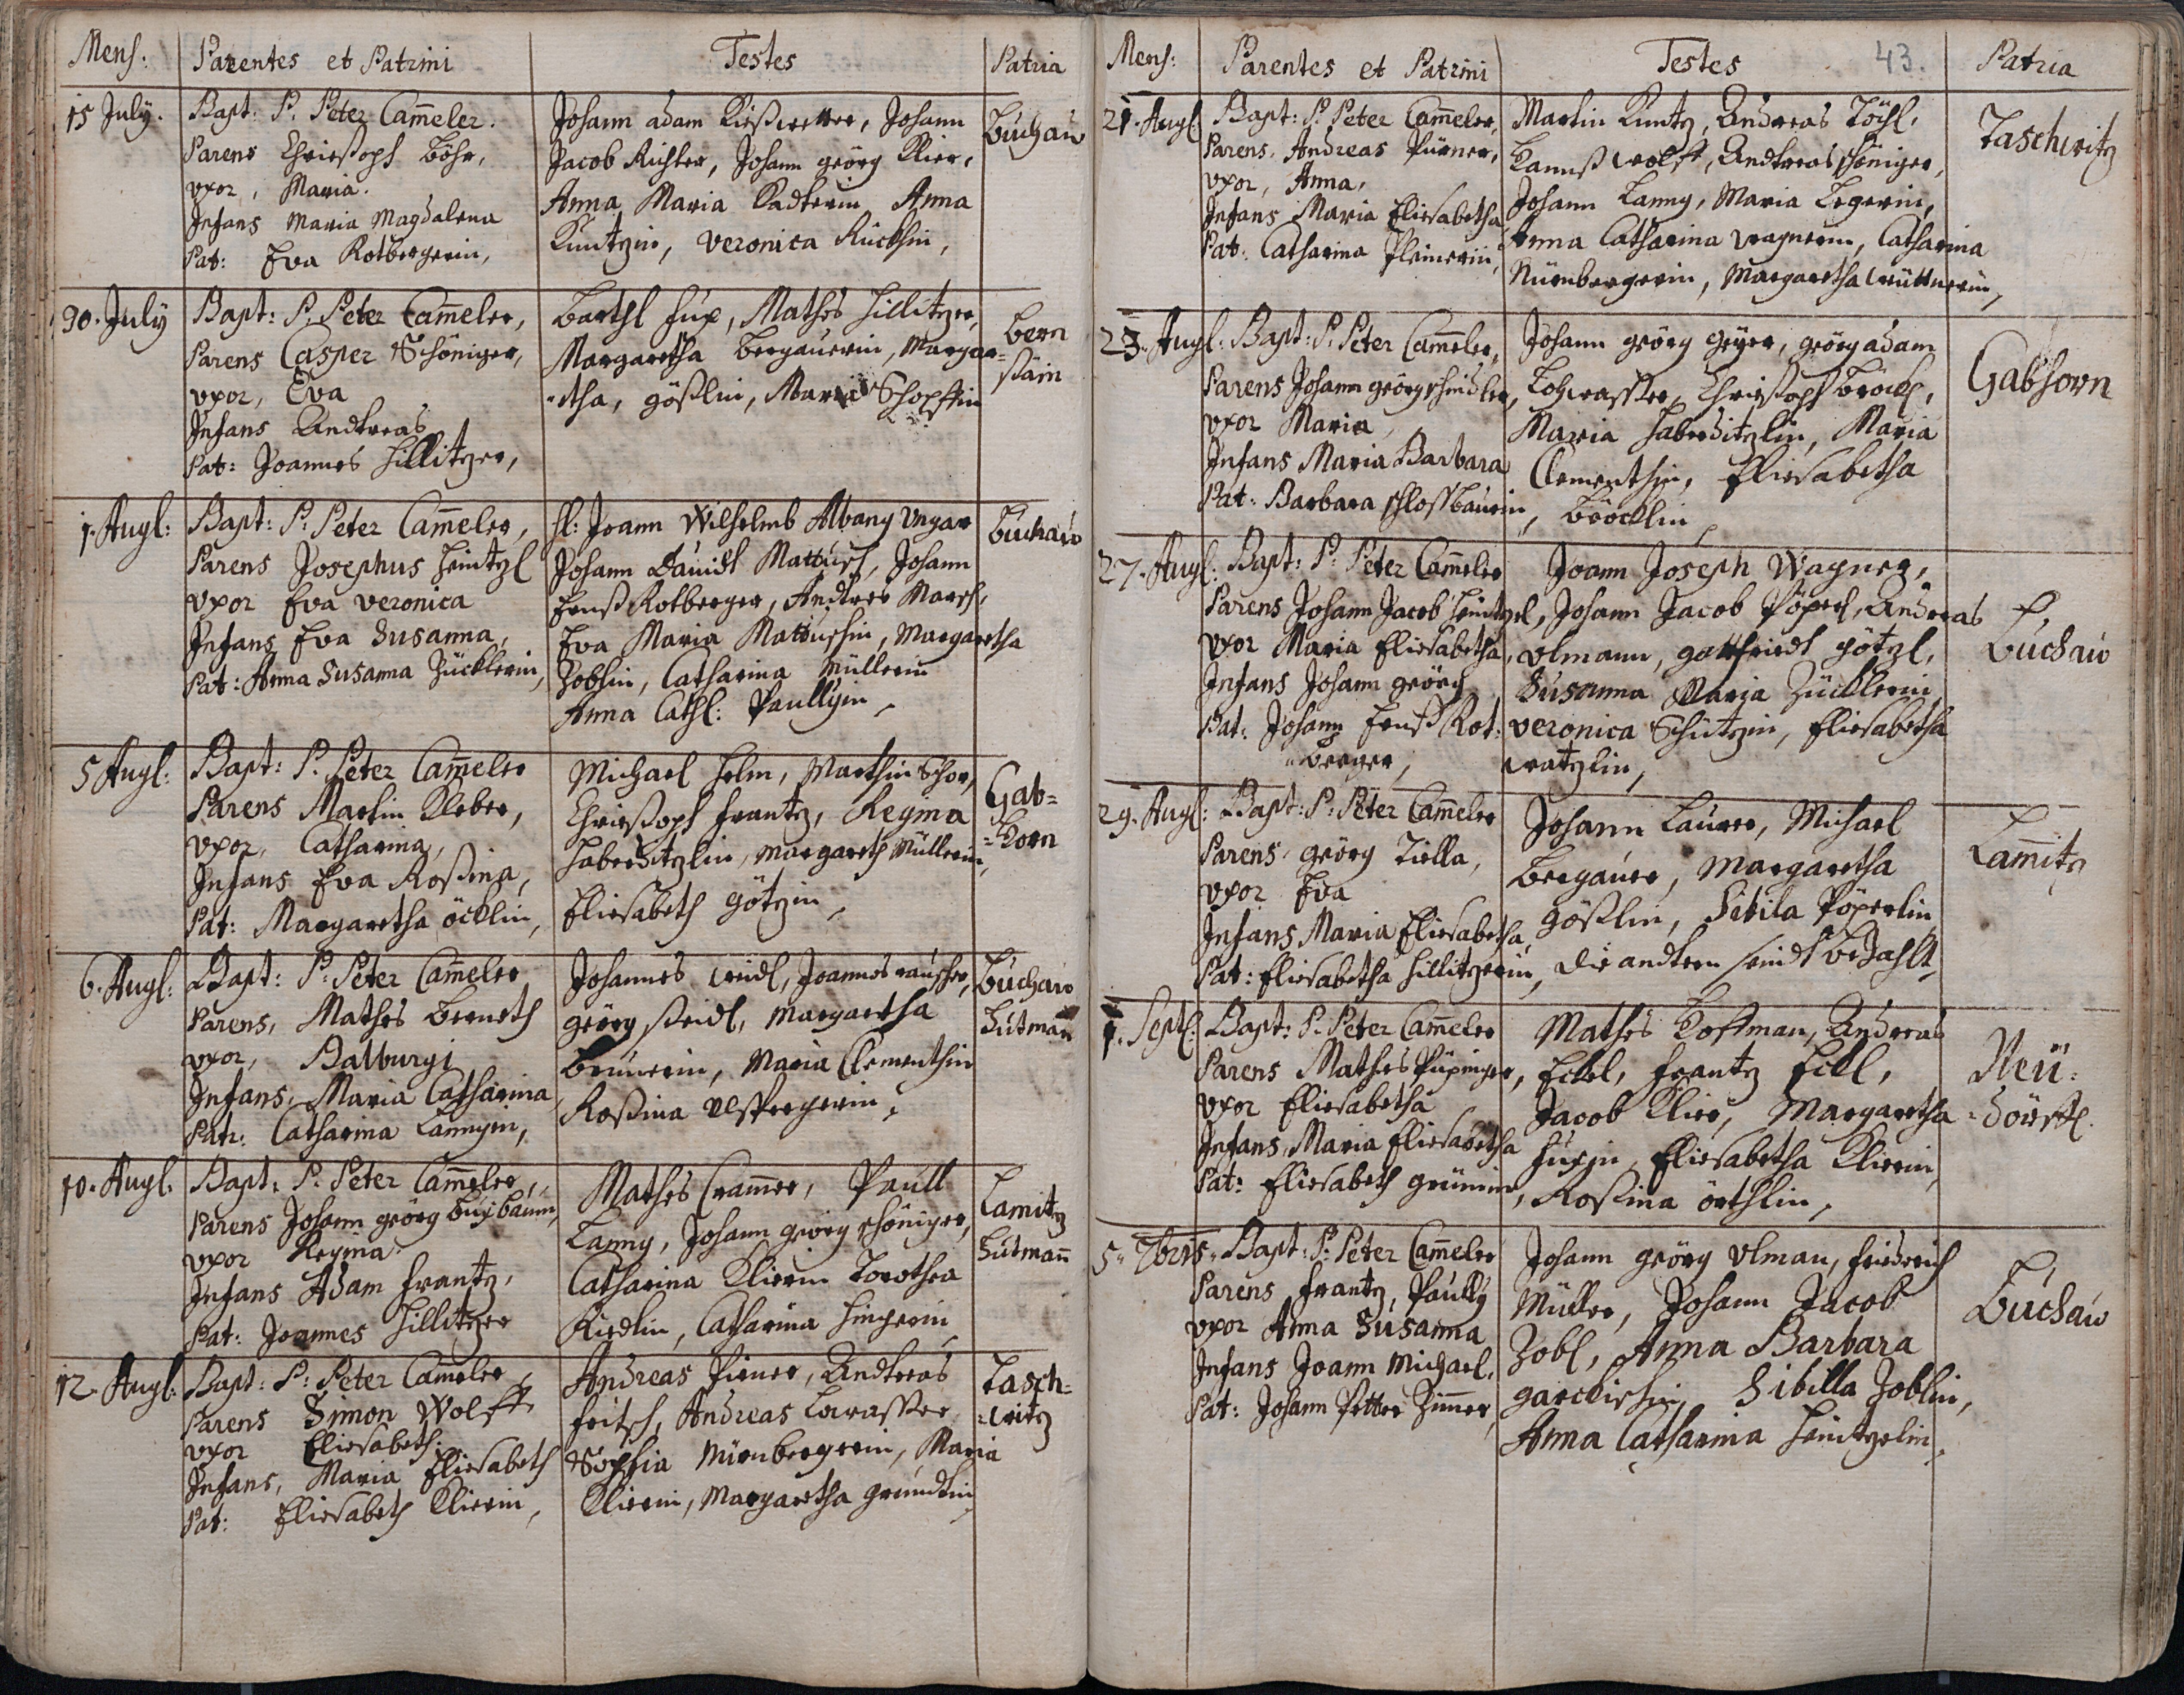 Mens:
Parentes et Patrini
Testes
Patria
15 July.
Bapt: P. Peter Cam̄eler.
Parens Chriestoph Böhr,
vxor, Maria.
Infans Maria Magdalena
Pat: Eva Rotbergerin,
Johann adam Kießwetter, Johann
Jacob Richter, Johann geörg Klier,
Anna Maria Anna
Kuntzin, Veronica
Buchau
30. July
Bapt: P. Peter Cam̄eler,
Parens Casper Schöniger,
vxor, Eva
Infans Andreas
Pat: Joannes Hillitzer,
Barthl Hüx, Mathes Hillitzer,
Margaretha Bergauerin, Margar=
=etha, gößlin, Maria Schopffin
Bern
stain
1. Augl:
Bapt: P. Peter Cam̄eler,
Parens Josephus Heintzl
Vxor Eva Veronica
Infans Eva Susanna,
Pat: Anna Susanna Zücklerin,
H: Joann Wilhelmb Albany Ungar
Johann Dauidt Mattusch, Johann
Ernst Rotberger, Andres March,
Eva Maria Mattuschin, Margaretha
Zoblin, Catharina Müllerin
Anna Cath: Paullyin,
Buchau
5 Augl:
Bapt: P. Peter Cam̄eler
Parens Martin Kleber,
vxor, Catharina,
Infans Eva Rosina,
Pat: Margaretha öcklin,
Michael Helm, Marthin Schor,
Chriestoph Frantz, Regina
Haberditzlin, Margareth Müllerin,
Eliesabeth Götzin,
Gab=
=horn
6. Augl:
Bapt: P. Peter Cam̄eler
Parens, Mathes Berneth
vxor, Balburgi
Infans, Maria Catharina
Patr: Catharina Lannyin,
Johannes Weidl, Joannes rauscher,
geörg Seidl, Margaretha
Brunerin, Maria Clementhin
Rosina
Buchau
Hutman̄
10. Augl.
Bapt: P. Peter Cam̄eler,
Parens Johann geörg Buxbaum,
vxor Regina
Infans Adam Frantz,
Pat: Joannes Hillitzer
Mathes Crammer, Paull
Lanny, Johann geörg Schöniger,
Catharina Klierin Dorothea
Riedlin, Catharina
Lamitz
Hutman̄
12. Augl:
Bapt: P: Peter Cameler,
Parens Simon Wolff
vxor Eliesabeth.
Infans, Maria Eliesabeth
Pat: Eliesabeth Klierin,
Andreas Pirner, Andreas
Fritsch, Andreas Lowasser
Sophia Nürnbergerin, Maria
Klierin, Margaretha gründlin,
Tasch=
=witz
Mens:
Parentes et Patrini
Testes
43.
Patria
21. Augl:
Bapt: P. Peter Cam̄eler,
Parens, Andreas Pürner,
vxor, Anna,
Infans Maria Eliesabetha
Pat: Catharina Pleinerin,
Martin Kuntz, Andreas Töchl,
Hannß Wolff, Andreas Schöniger,
Johann Lanny, Maria Legerin,
Anna Catharina Wagnerin, Catharina
Nürnbergerin, Margaretha Wüttnerin,
Taschwitz
23. Augl:
Bapt: P. Peter Cam̄eler,
Parens Johann geörg Schindler,
vxor Maria,
Infans Maria Barbara
Pat: Barbara Schlossbaurin,
Johann geörg Geÿer, geörg adam
Lohwasser, Chriestoph Bröckl,
Maria Haberditzlin, Maria
Clementhin, Eliesabetha
Bröcklin
Gabhorn
27. Augl:
Bapt: P: Peter Cam̄eler
Parens Johann Jacob Heintzel,
vxor Maria Eliesabetha,
Infans Johann geörg
Pat: Johann Ernst Rot:
=berger,
Joann Joseph Wagner,
Johann Jacob Pöperl, Andreas
Vlmann, gottfriedt götzl,
Susanna Maria Zücklerin,
Veronica Schützin, Eliesabetha
Watzlin,
Buchau
29. Augl:
Bapt: P: Peter Cam̄eler
Parens, geörg Tiella,
vxor Eva
Infans Maria Eliesabetha,
Pat: Eliesabetha Hillitzerin,
Johann Laurer, Michael
Bergauer, Margaretha
gößlin, Sibila Pöperlin
die andtern seindt bezahlt,
Lam̄itz
1. Septl:
Bapt: P. Peter Cam̄eler
Parens Mathes Püpinger,
vxor Eliesabetha
Infans, Maria Eliesabetha
Pat: Eliesabeth Grünerin,
Mathes Hoffman, Andreas
Eckel, Frantz Eckl,
Jacob Klier, Margaretha
Hüxin, Eliesabetha Klierin,
Rosina örthlin,
Neü:
=dörffl.
5. 7bris.
Bapt: P: Peter Cam̄eler
Parens Frantz, Paully
vxor Anna Susanna
Infans Joann Michael,
Pat: Johann Petter Zimmer,
Johann geörg Vlman, Friderich
Müller, Johann Jacob
Zobl, Anna Barbara
Sibilla Zoblin,
Anna Catharina Heintzelin,
Buchau